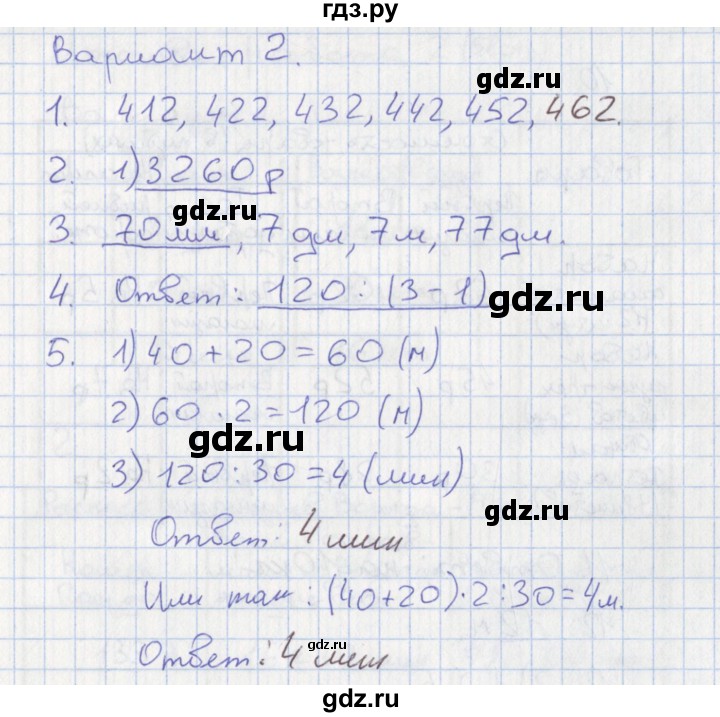 гдз.ру
Вариант 2.
gdz.ru
1. 412, 422, 432, 442, 452, 462.
2. 1) 3260 р
gdz.ru
3. 70 мм, 7 дм, 7 м, 77 дм.
4. Ответ: 120 : (3-1)
gdz.ru
5. 1) 40 + 20 = 60 (м)
2) 60 · 2 = 120 (м)
gdz.ru
3) 120 : 30 = 4 (мин)
gdz.ru
Ответ: 4 мин
Или так: (40+20)·2:30=4м.
gdz.ru
Ответ: 4 мин
gdz.ru